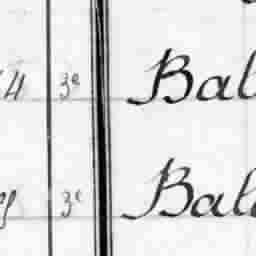 4 3e Bal
3e Bal